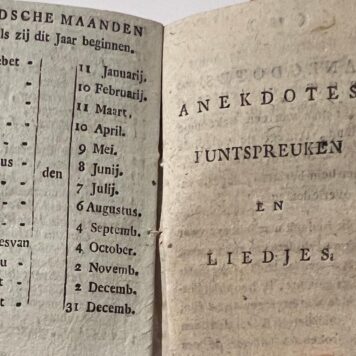 DSCHE MAANDEN
ls zij dit Jaar beginnen.
ebet - 11 Januarij.
10 Februarij.
11 Maart.
10 April.
9 Mei.
us den 8 Junij.
7 Julij.
6 Augustus.
4 Septemb.
esvan 4 October.
u 2 Novemb.
t 2 Decemb.
31 Decemb.
ANEKDOTES
PUNTSPREUKEN
EN
LIEDJES.